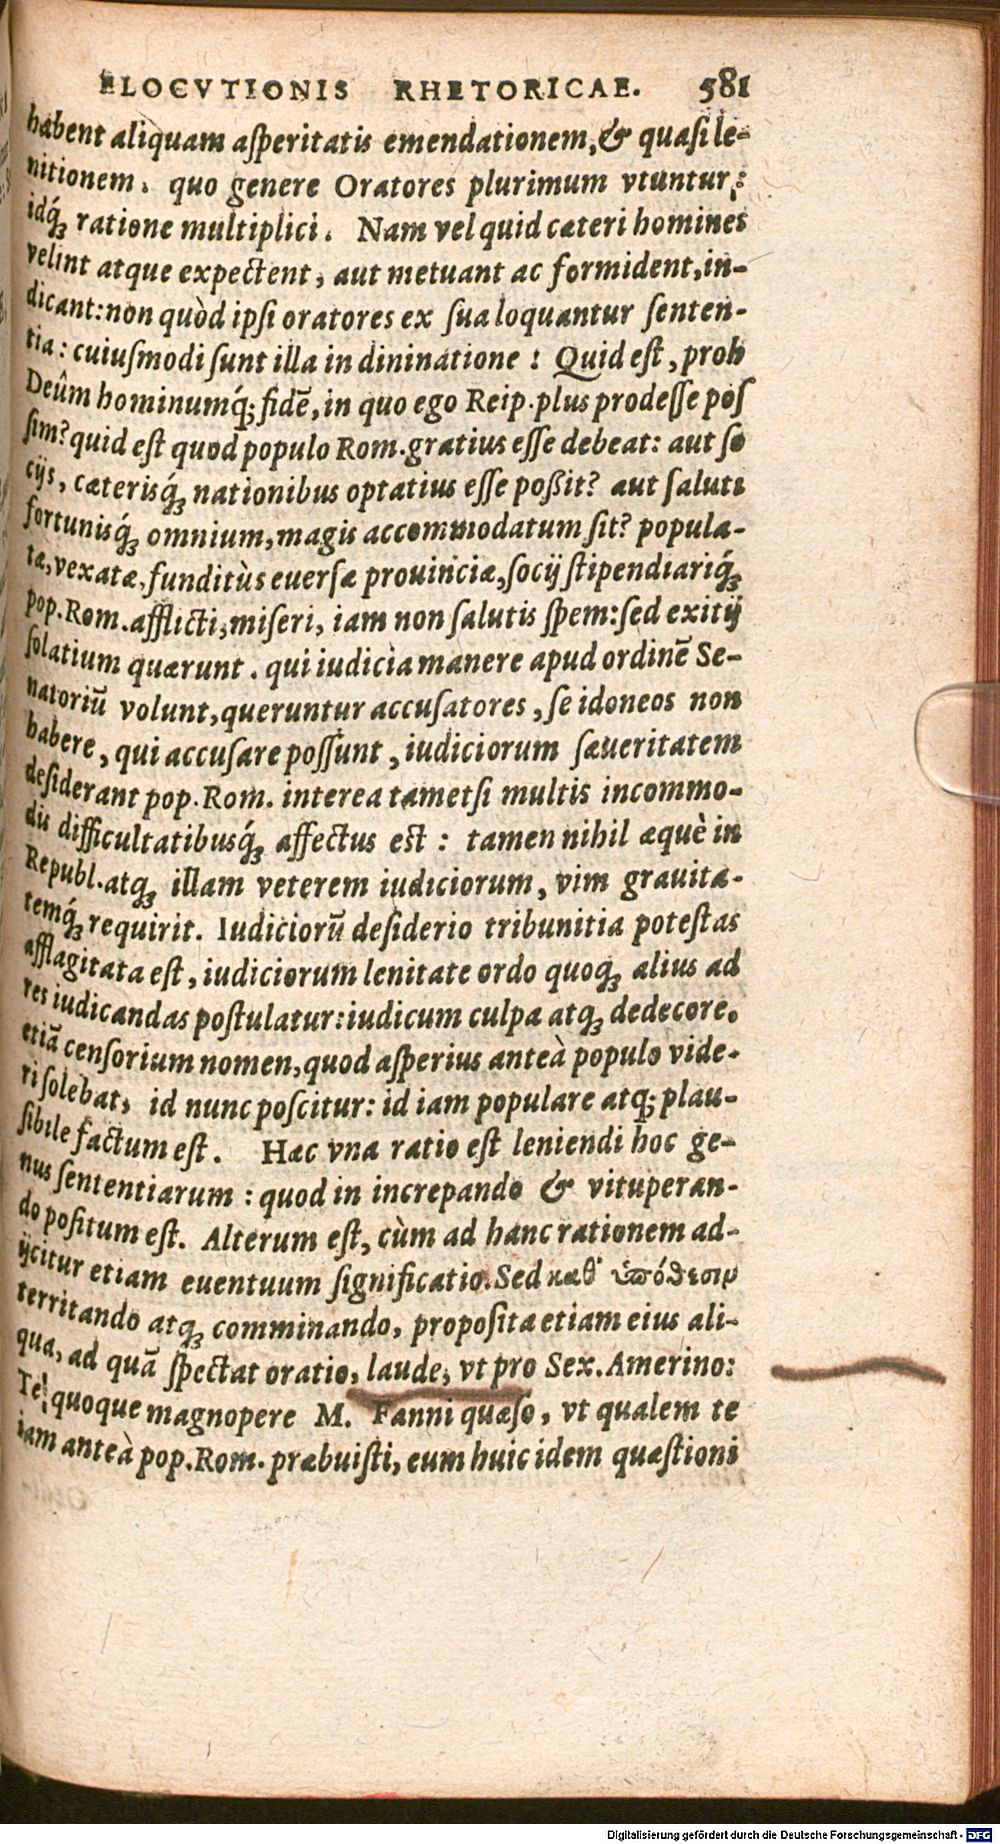 ELOCVTIONIS RHETORICAE. 581
habent aliquam aſperitatis emendationem, & quaſi le-
nitionem. quo genere Oratores plurimum vtuntur:
idq́ꝫ ratione multiplici. Nam vel quid cæteri homines
velint atque expectent, aut metuant ac formident, in-
dicant: non quòd ipſi oratores ex ſua loquantur ſenten-
tia: cuiuſmodi ſunt illa in dininatione: Quid eſt, proh
Deûm hominumq́; fidē, in quo ego Reip. plus prodeſſe poſ
ſim? quid eſt quod populo Rom. gratius eſſe debeat: aut ſo
cijs, cæterisq́ꝫ nationibus optatius eſſe poßit? aut ſaluti
fortunisq́ꝫ omnium, magis accommodatum ſit? popula-
tæ, vexatæ, funditùs euerſæ prouinciæ, ſocij ſtipendiariq́ꝫ
pop. Rom. afflicti, miſeri, iam non ſalutis ſpem: ſed exitij
ſolatium quærunt. qui iudicia manere apud ordinē Se-
natoriū volunt, queruntur accuſatores, ſe idoneos non
habere, qui accuſare poſſunt, iudiciorum ſæueritatem
deſiderant pop. Rom. interea tametſi multis incommo-
dis difficultatibusq́ꝫ affectus eſt: tamen nihil æquè in
Republ. atqꝫ illam veterem iudiciorum, vim grauita-
temq́ꝫ requirit. Iudiciorū deſiderio tribunitia poteſtas
afflagitata eſt, iudiciorum lenitate ordo quoqꝫ alius ad
res iudicandas poſtulatur: iudicum culpa atqꝫ dedecore.
etiā cenſorium nomen, quod aſperius anteà populo vide-
ri ſolebat, id nunc poſcitur: id iam populare atq; plau-
ſibile factum eſt. Hæc vna ratio eſt leniendi hoc ge-
nus ſententiarum: quod in increpando & vituperan-
do poſitum eſt. Alterum eſt, cùm ad hanc rationem ad-
ijcitur etiam euentuum ſignificatio. Sed καθ' ὑπόθεσιν
territando atqꝫ comminando, propoſita etiam eius ali-
qua, ad quā ſpectat oratio, laude, vt pro Sex. Amerino:
Te quoque magnopere M. Fanni quæſo, vt qualem te
iam anteà pop. Rom. præbuiſti, eum huic idem quæſtioni
Digitalisierung gefördert durch die Deutsche Forschungsgemeinschaft - DFG